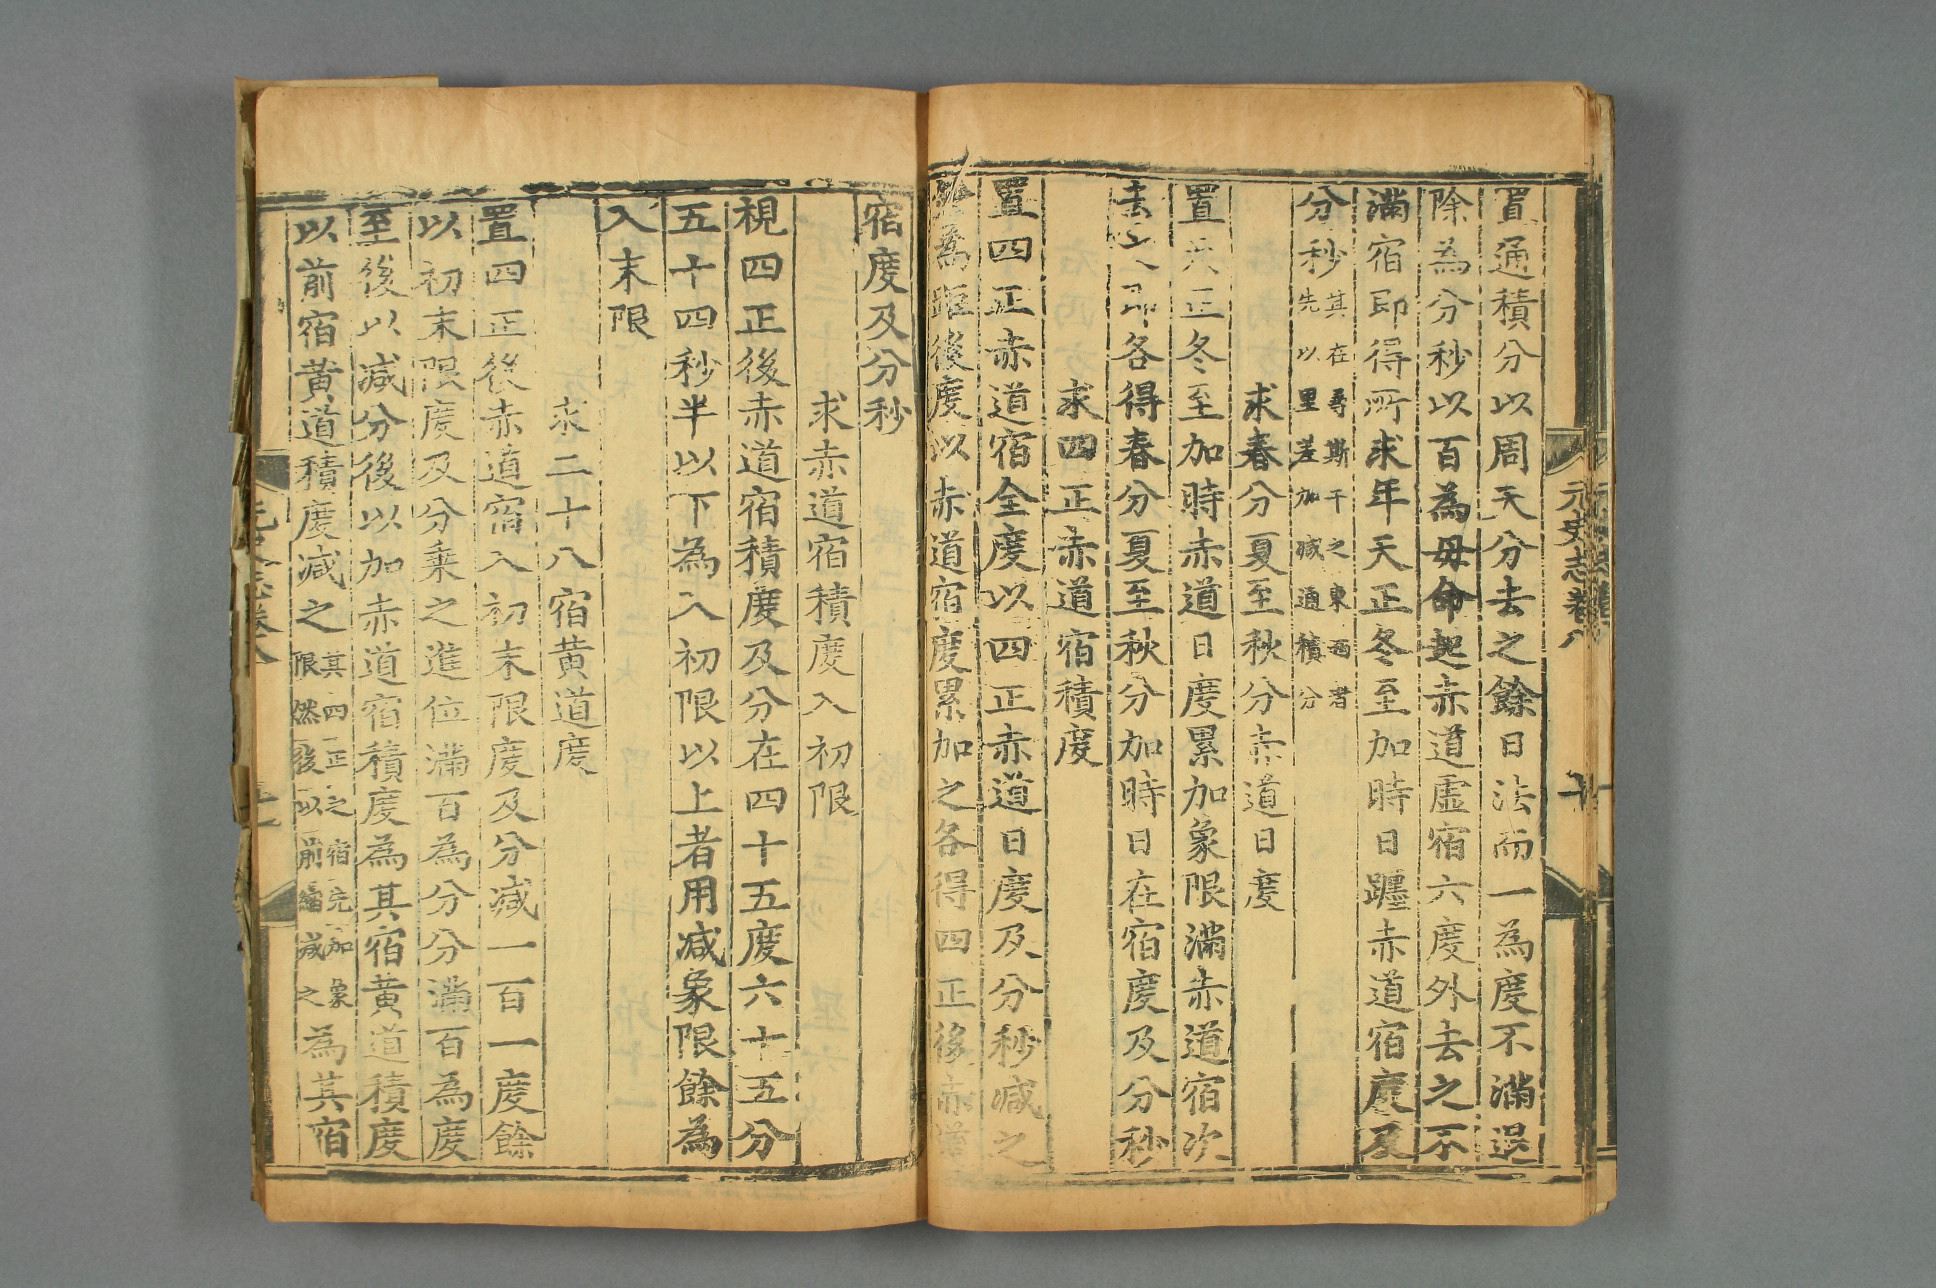 置通積分以周天分去之餘日法而一為度不滿退
除為分秒以百為母命起赤道虛宿六度外去之不
滿宿即得所求年天正冬至加時日躔赤道宿度及
分秒其在尋斯干之東西者先以里差加減通積分
求春分夏至秋分赤道日度
置天正冬至加時赤道日度累加象限滿赤道宿次
去之即各得春分夏至秋分加時日在宿度及分秒
求四正赤道宿積度
置四正赤道宿全度以四正赤道日度及分秒減之
為距後度以赤道宿度累加之各得四正後赤道
宿度及分秒
求赤道宿積度入初限
視四正後赤道宿積度及分在四十五度六十五分
五十四秒半以下為入初限以上者用減象限餘為
入末限
求二十八宿黃道度
置四正後赤道宿入初末限度及分減一百一度餘
以初末限度及分乘之進位滿百為分分滿百為度
至後以減分後以加赤道宿積度為其宿黃道積度
以前宿黃道積度減之其四正之宿先加象限然後以前縮減之為其宿
元史志卷八
十